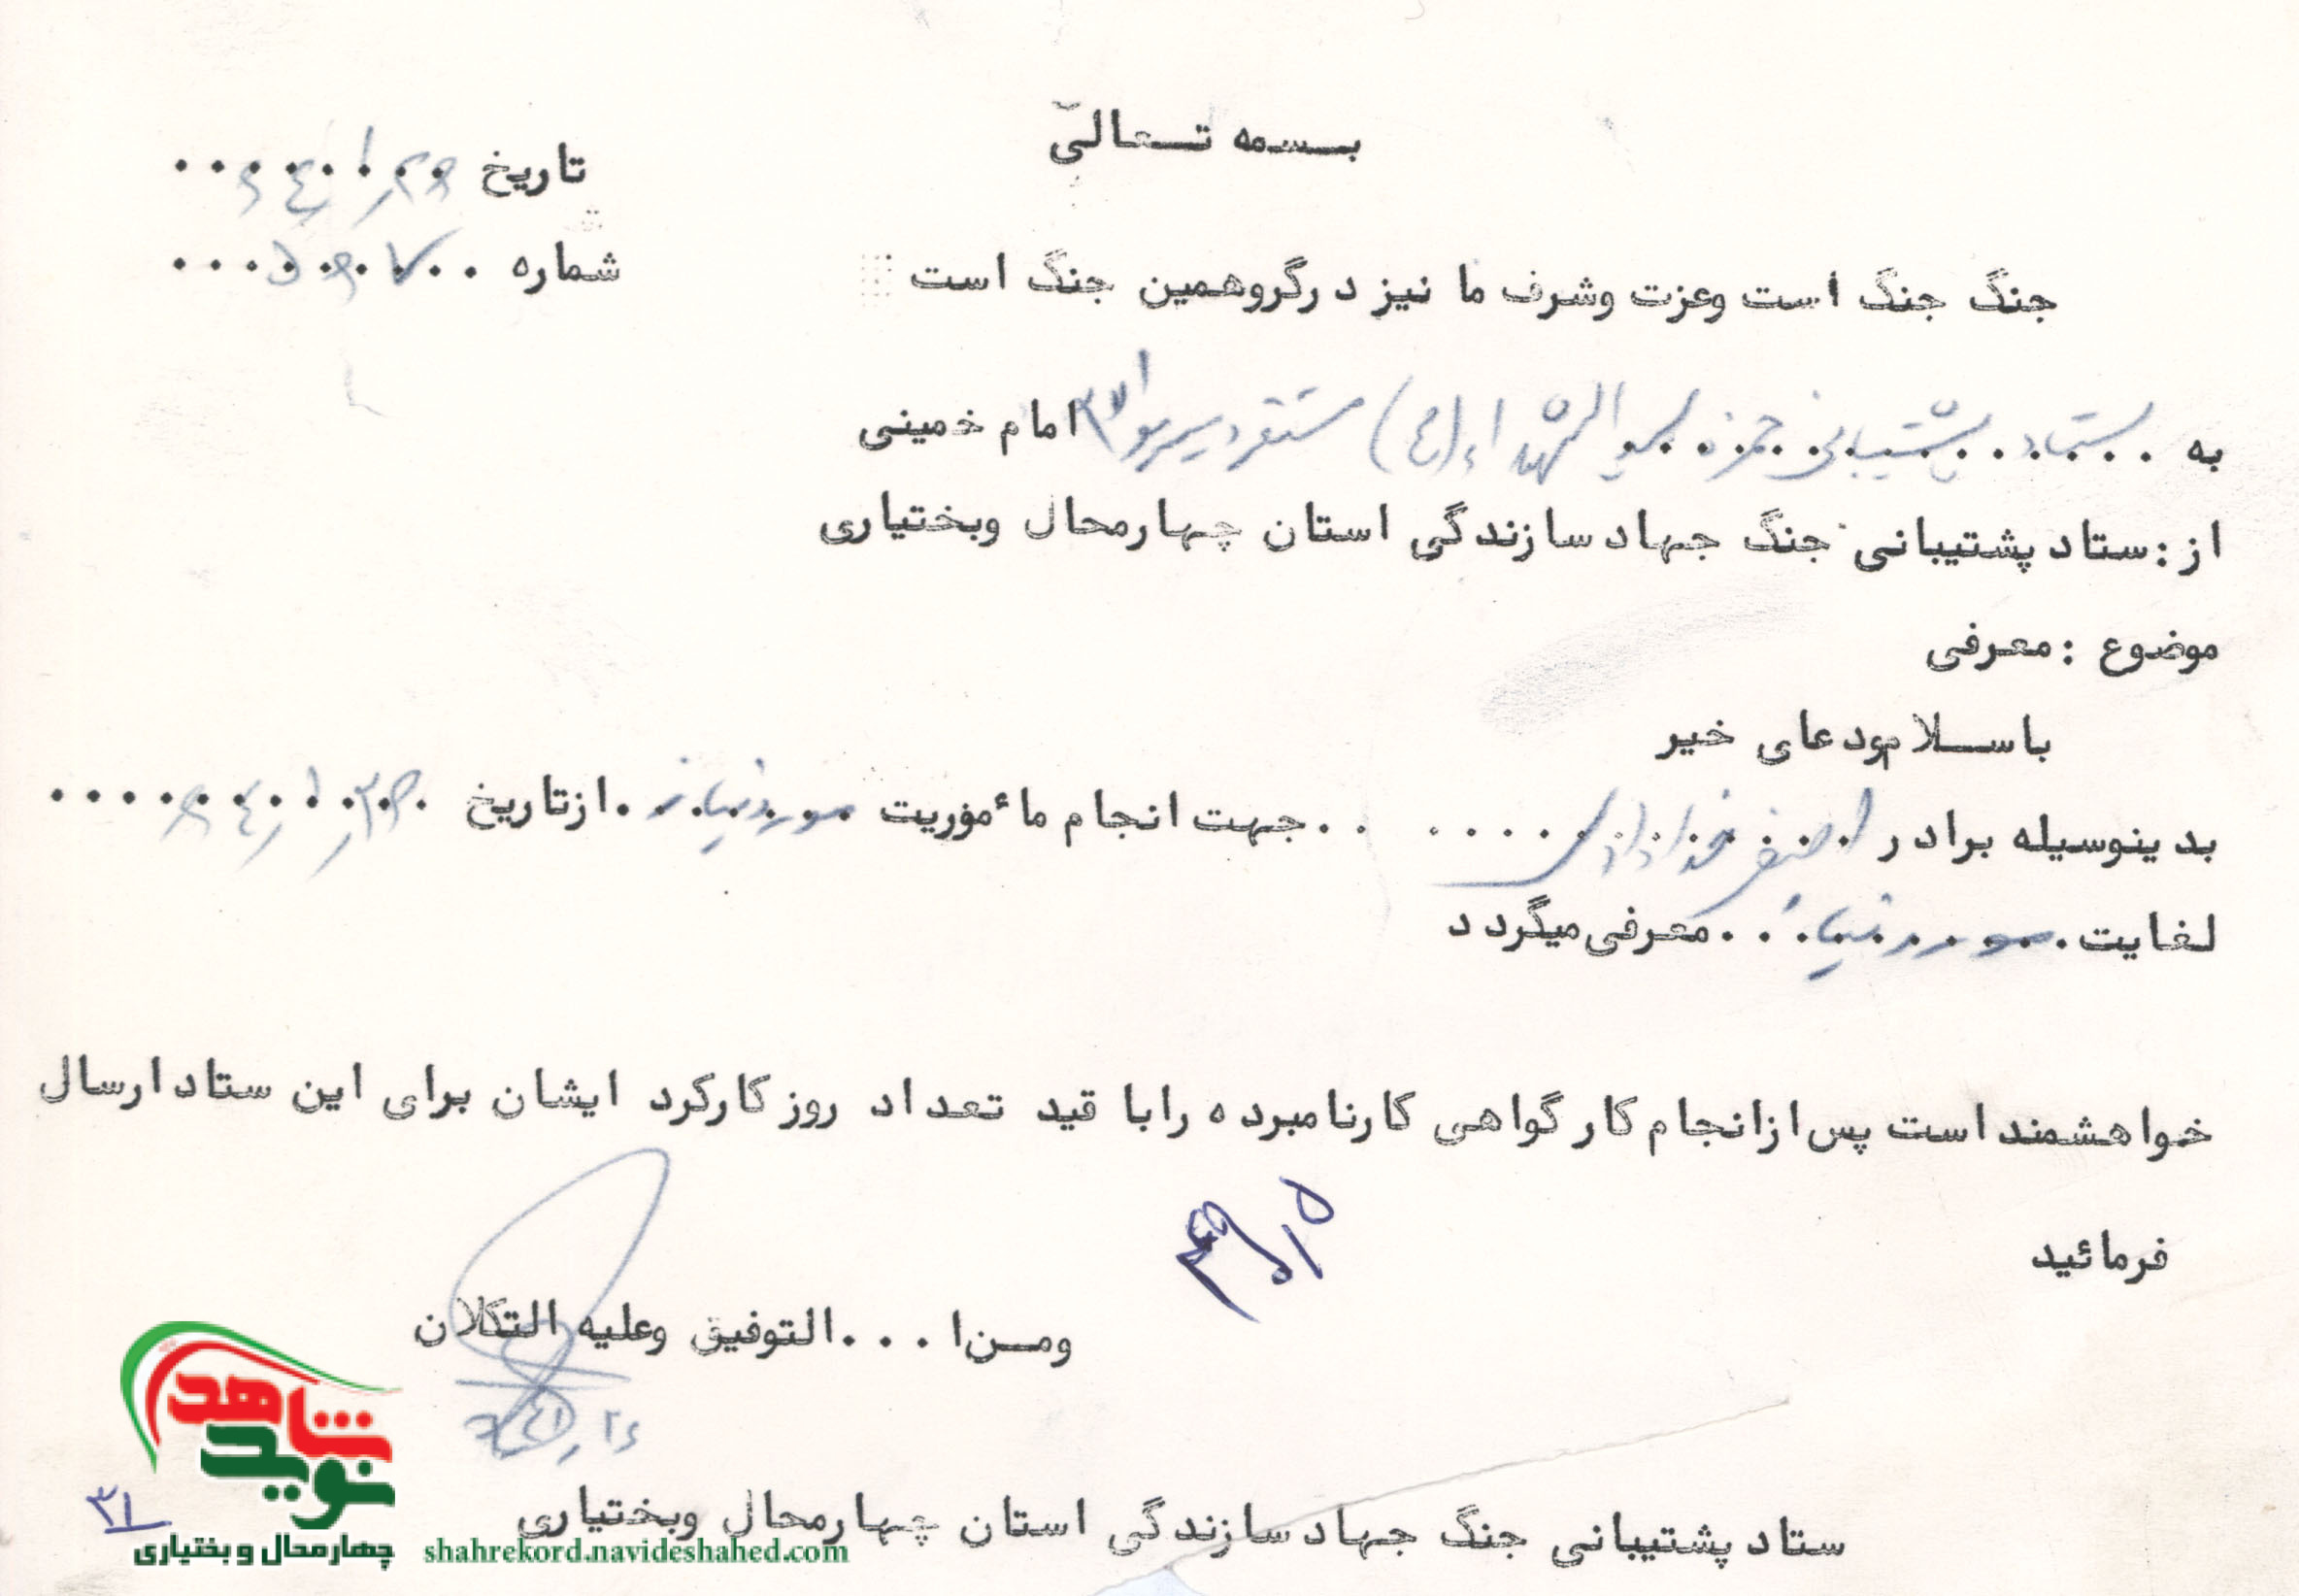 بسمه تعالی
تاریخ
شماره
جنگ جنگ است وعزت وشرف ما نیز درگروهمین جنگ است
امام خمینی
به ستاد پشتیبانی حمزه سید الشهداء (ع) مستقر در
از : ستاد پشتیبانی جنگ جهاد سازندگی استان چهارمحال وبختیاری
موضوع : معرفی
با سلام ودعای خیر
بدینوسیله برادر اصغر خدادادی جهت انجام مأموریت مورد نیاز ازتاریخ
لغایت مورد نیاز معرفی میگردد
خواهشمند است پس ازانجام کار گواهی کارنامبرده رابا قید تعداد روزکارکرد ایشان برای این ستاد ارسال
فرمائید
ومن ا . . . التوفیق وعلیه التکلان
ستاد پشتیبانی جنگ جهاد سازندگی استان چهارمحال وبختیاری
۳۱
نوید شاهد
چهارمحال و بختیاری
shahrekord.navideshahed.com